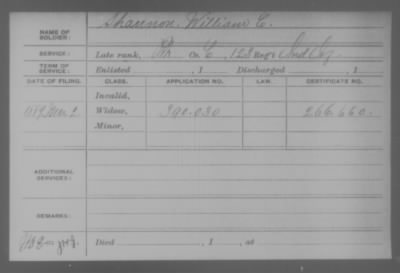 NAME OF SOLDIER: Shannon, William C.
SERVICE: Late rank, Co. C, 123 Reg't Ind. Inf.
TERM OF SERVICE: Enlisted , 1 Discharged , 1
DATE OF FILING. CLASS. APPLICATION NO. LAW. CERTIFICATE NO.
Invalid,
Widow, 390.030 266.660
Minor,
ADDITIONAL SERVICES:
REMARKS:
Died , 1 , at